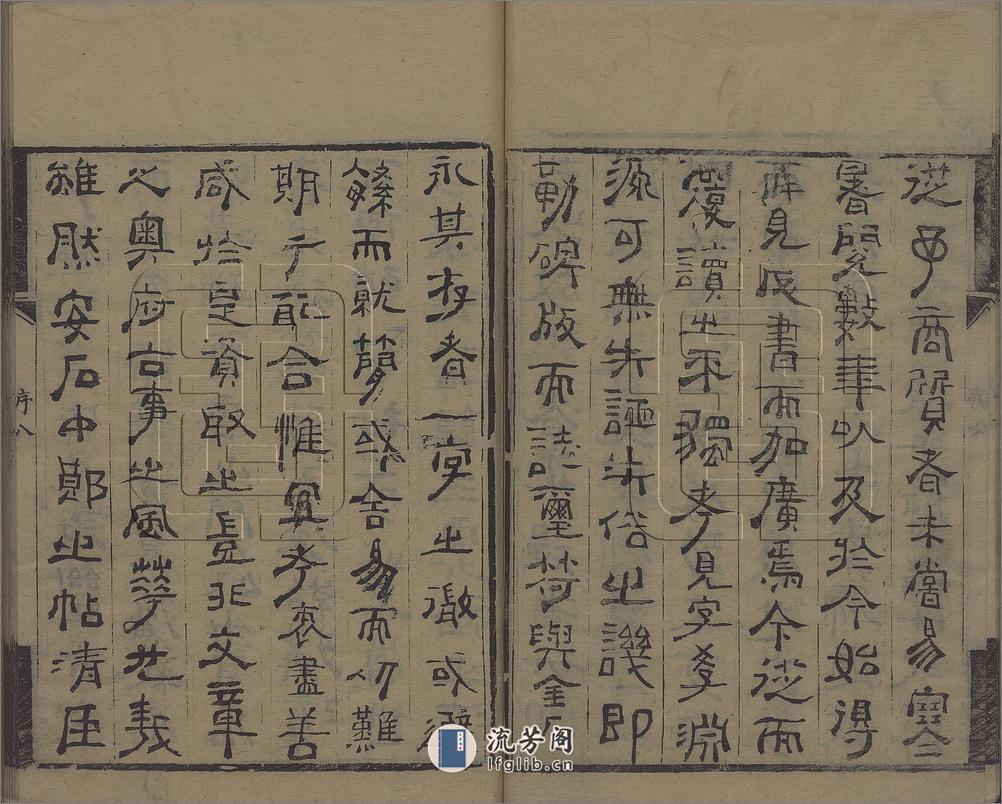 從子商質者未嘗易寒
暑閱數年以及於今始得
再見成書而加廣焉今從而
覆讀之不獨考見字學淵
源可無失譌失俗之譏即
勒碑版而誌璽符與金石
永其存者一字之徵或避
繁而就簡或舍易而以難
期于配合惟宜孝衷盡善
咸於是資取之豈非文章
之奧府古事之風華也哉
雖然安石中郎之帖清臣
序八
流芳阁
lfglib.cn